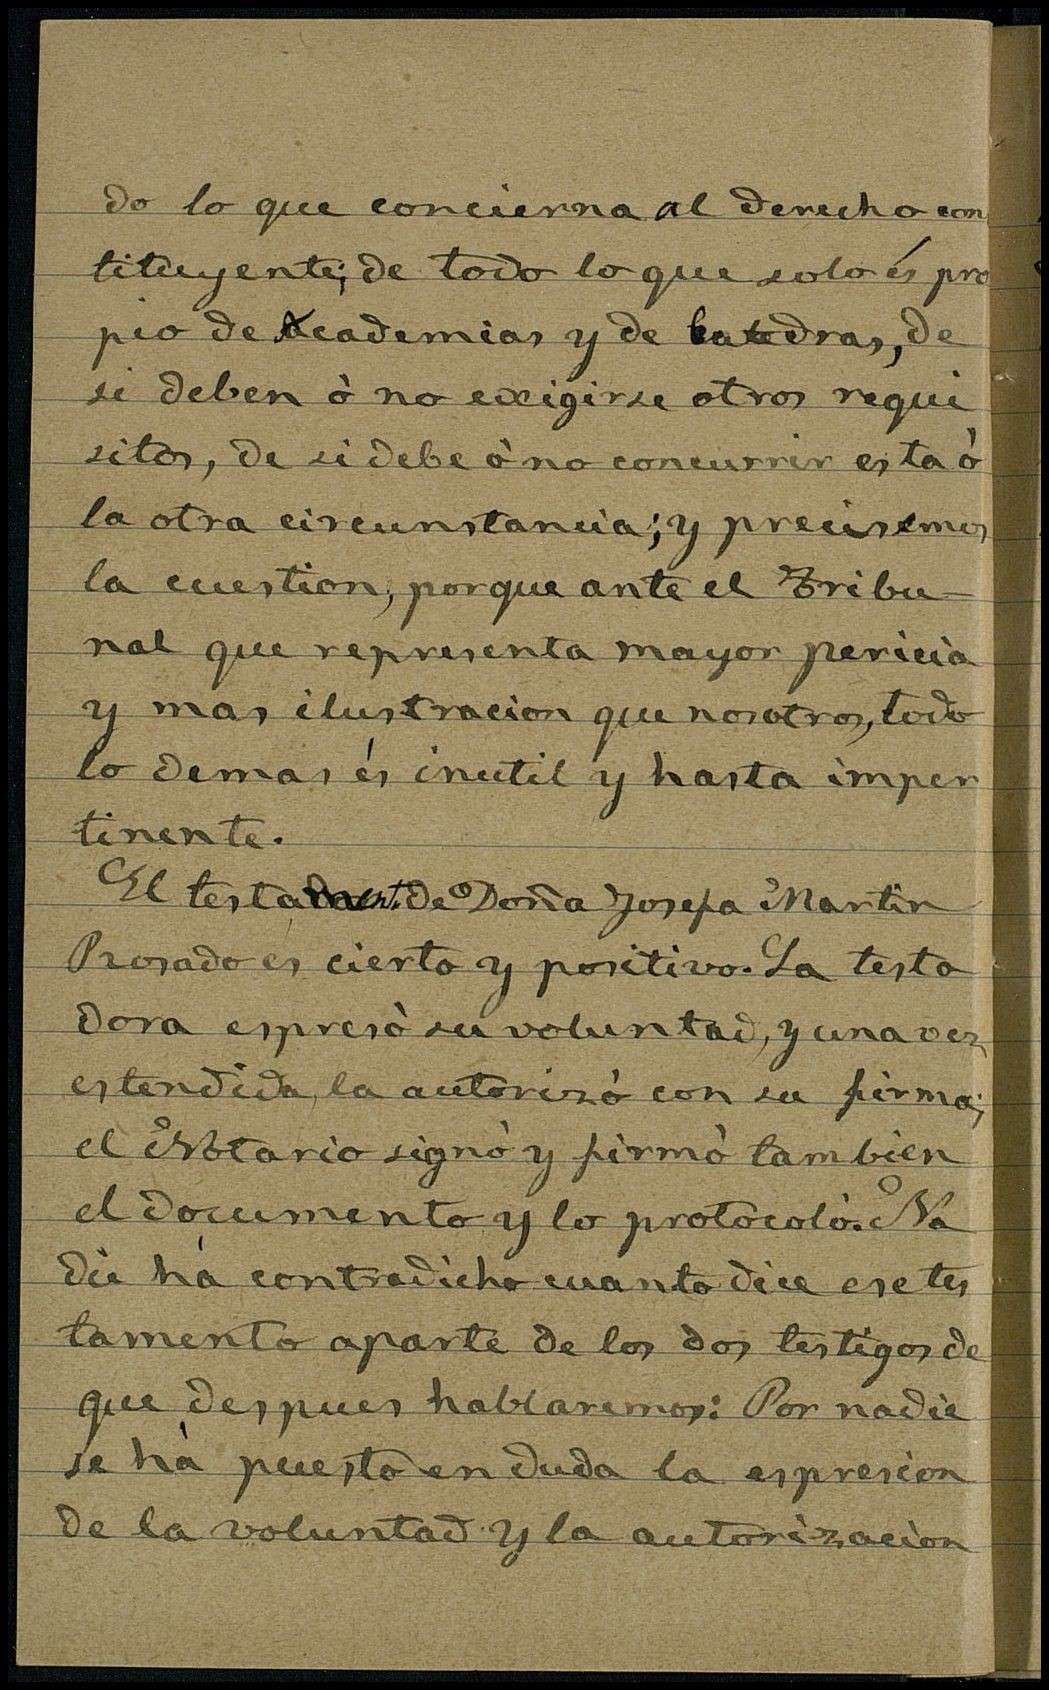 do lo que concierna al derecho con
tituyente; de todo lo que solo és pro
pio de Academias y de Catedras, de
si deben ò no exigirse otros requi
sitos, de si debe ò no concurrir esta ò
la otra circunstancia; y precisemos
la cuestion, porque ante el Tribu-
nal que representa mayor pericia
y mas ilustracion que nosotros, todo
lo demas és inutil y hasta imper
tinente.
El testament. de Doña Josefa Martin
Rosado es cierto y positivo. La testa
dora espresò su voluntad, y una vez
estendida, la autorizó con su firma;
el Notario signò y firmò tambien
el documento y lo protocolò. Na
die há contradicho cuanto dice ese tes
tamento aparte de los dos testigos de
que despues hablaremos: Por nadie
se hà puesto en duda la espresion
de la voluntad y la autorizacion